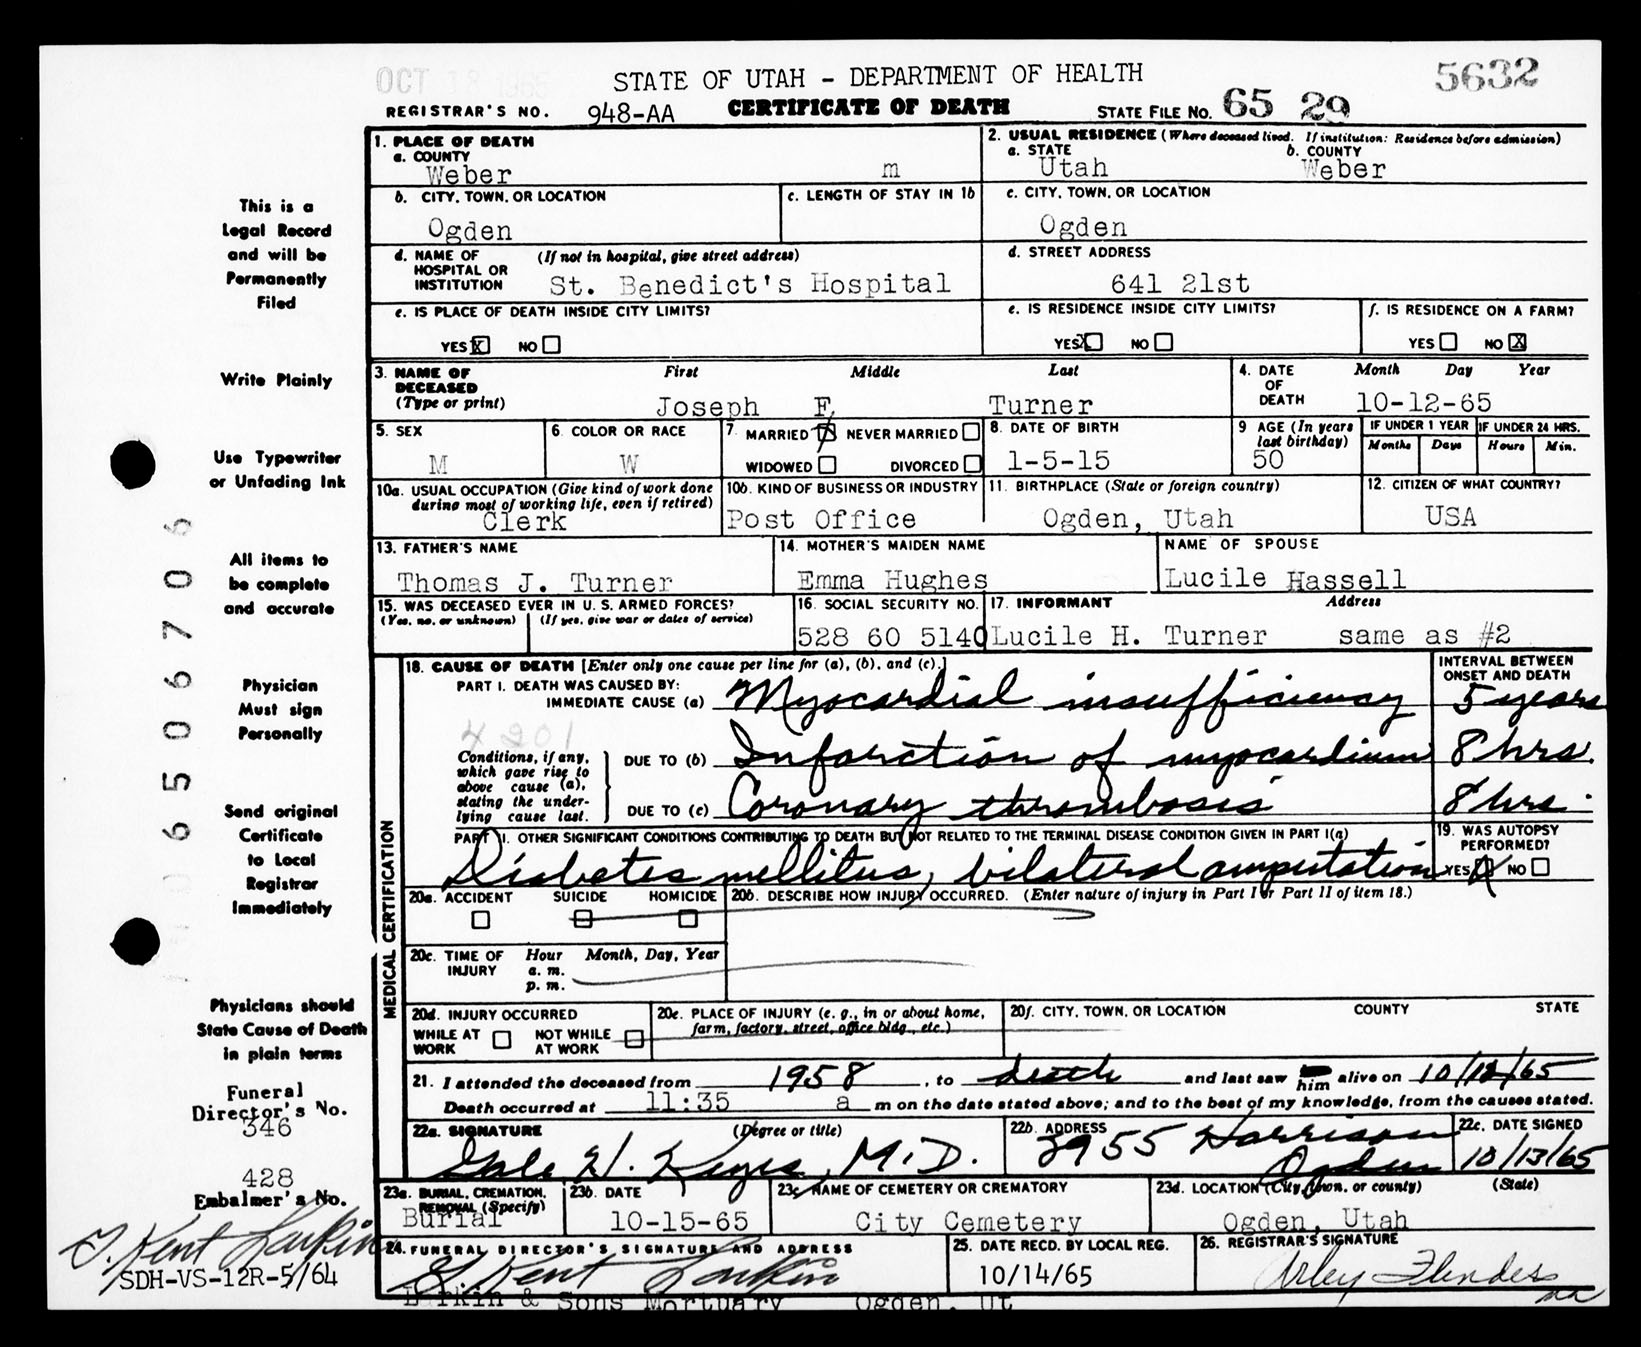 OCT 18 1965
STATE OF UTAH - DEPARTMENT OF HEALTH
5632
REGISTRAR'S NO. 948-AA CERTIFICATE OF DEATH STATE FILE NO. 65 29
1. PLACE OF DEATH
a. COUNTY
Weber m
2. USUAL RESIDENCE (Where deceased lived. If institution: Residence before admission)
a. STATE b. COUNTY
Utah Weber
b. CITY, TOWN, OR LOCATION
Ogden
c. LENGTH OF STAY IN 1b
c. CITY, TOWN, OR LOCATION
Ogden
d. NAME OF HOSPITAL OR INSTITUTION (If not in hospital, give street address)
St. Benedict's Hospital
d. STREET ADDRESS
641 21st
e. IS PLACE OF DEATH INSIDE CITY LIMITS?
YES X NO
e. IS RESIDENCE INSIDE CITY LIMITS?
YES X NO
f. IS RESIDENCE ON A FARM?
YES NO X
3. NAME OF DECEASED (Type or print) First Middle Last
Joseph F. Turner
4. DATE OF DEATH Month Day Year
10-12-65
5. SEX
M
6. COLOR OR RACE
W
7. MARRIED X NEVER MARRIED
WIDOWED DIVORCED
8. DATE OF BIRTH
1-5-15
9 AGE (In years last birthday)
50
IF UNDER 1 YEAR IF UNDER 24 HRS.
Months Days Hours Min.
10a. USUAL OCCUPATION (Give kind of work done during most of working life, even if retired)
Clerk
10b. KIND OF BUSINESS OR INDUSTRY
Post Office
11. BIRTHPLACE (State or foreign country)
Ogden, Utah
12. CITIZEN OF WHAT COUNTRY?
USA
13. FATHER'S NAME
Thomas J. Turner
14. MOTHER'S MAIDEN NAME
Emma Hughes
NAME OF SPOUSE
Lucile Hassell
15. WAS DECEASED EVER IN U. S. ARMED FORCES?
(Yes, no, or unknown) (If yes, give war or dates of service)
16. SOCIAL SECURITY NO.
528 60 5140
17. INFORMANT Address
Lucile H. Turner same as #2
MEDICAL CERTIFICATION
18. CAUSE OF DEATH [Enter only one cause per line for (a), (b), and (c).]
INTERVAL BETWEEN ONSET AND DEATH
PART I. DEATH WAS CAUSED BY:
IMMEDIATE CAUSE (a) Myocardial insufficiency 5 years
4201
Conditions, if any, which gave rise to above cause (a), stating the underlying cause last.
DUE TO (b) Infarction of myocardium 8 hrs.
DUE TO (c) Coronary thrombosis 8 hrs.
PART II. OTHER SIGNIFICANT CONDITIONS CONTRIBUTING TO DEATH BUT NOT RELATED TO THE TERMINAL DISEASE CONDITION GIVEN IN PART I(a)
Diabetes mellitus, bilateral amputation
19. WAS AUTOPSY PERFORMED?
YES X NO
20a. ACCIDENT SUICIDE HOMICIDE
20b. DESCRIBE HOW INJURY OCCURRED. (Enter nature of injury in Part I or Part II of item 18.)
20c. TIME OF INJURY Hour Month, Day, Year
a. m.
p. m.
20d. INJURY OCCURRED
WHILE AT WORK NOT WHILE AT WORK
20e. PLACE OF INJURY (e. g., in or about home, farm, factory, street, office bldg., etc.)
20f. CITY, TOWN, OR LOCATION COUNTY STATE
21. I attended the deceased from 1958, to death and last saw him alive on 10/12/65
Death occurred at 11:35 a m on the date stated above; and to the best of my knowledge, from the causes stated.
22a. SIGNATURE (Degree or title)
M.D.
22b. ADDRESS
3955 Harrison
Ogden
22c. DATE SIGNED
10/13/65
23a. BURIAL, CREMATION, REMOVAL (Specify)
Burial
23b. DATE
10-15-65
23c. NAME OF CEMETERY OR CREMATORY
City Cemetery
23d. LOCATION (City, town, or county) (State)
Ogden, Utah
24. FUNERAL DIRECTOR'S SIGNATURE AND ADDRESS
G. Kent Larkin
Larkin & Sons Mortuary Ogden, Ut
25. DATE RECD. BY LOCAL REG.
10/14/65
26. REGISTRAR'S SIGNATURE
Arley Flinders
This is a
Legal Record
and will be
Permanently
Filed
Write Plainly
Use Typewriter
or Unfading Ink
All items to
be complete
and accurate
Physician
Must sign
Personally
Send original
Certificate
to Local
Registrar
Immediately
Physicians should
State Cause of Death
in plain terms
Funeral
Director's No.
346
428
Embalmer's No.
G. Kent Larkin
SDH-VS-12R-5/64